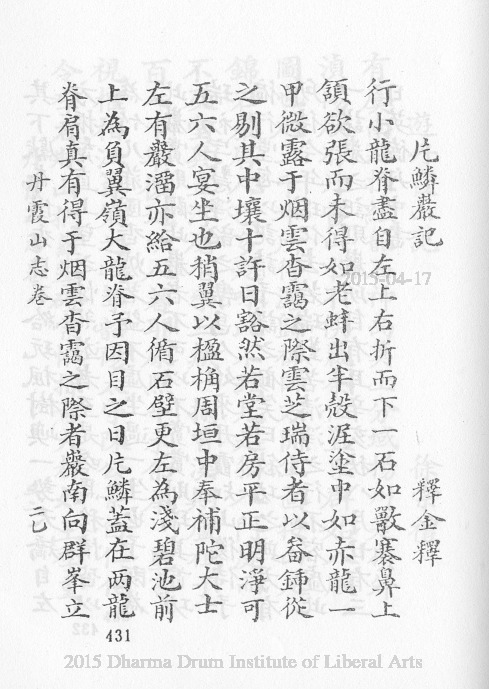 片鱗巖記
釋今釋
行小龍脊盡自左上右折而下一石如獸蹇鼻上
頷欲張而未得如老蚌出半殼涯塗中如赤龍一
甲微露于烟雲杳靄之際雲芝瑞侍者以畚鍤從
之剔其中壤十許日豁然若堂若房平正明淨可
五六人宴坐也稍翼以楹桷周垣中奉補陀大士
左有巖溜亦給五六人循石壁更左為淺碧池前
上為負翼嶺大龍脊予因目之曰片鱗蓋在两龍
脊肩真有得于烟雲杳靄之際者巖南向群峯立
丹霞山志卷
二
431
2015-04-17
2015 Dharma Drum Institute of Liberal Arts